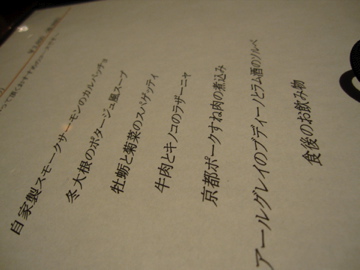 自家製スモークサーモンのカルパッチョ
冬大根のポタージュ風スープ
牡蛎と菊菜のスパゲッティ
牛肉とキノコのラザーニャ
京都ポークすね肉の煮込み
アールグレイのブディーノとラム酒のソルベ
食後のお飲み物